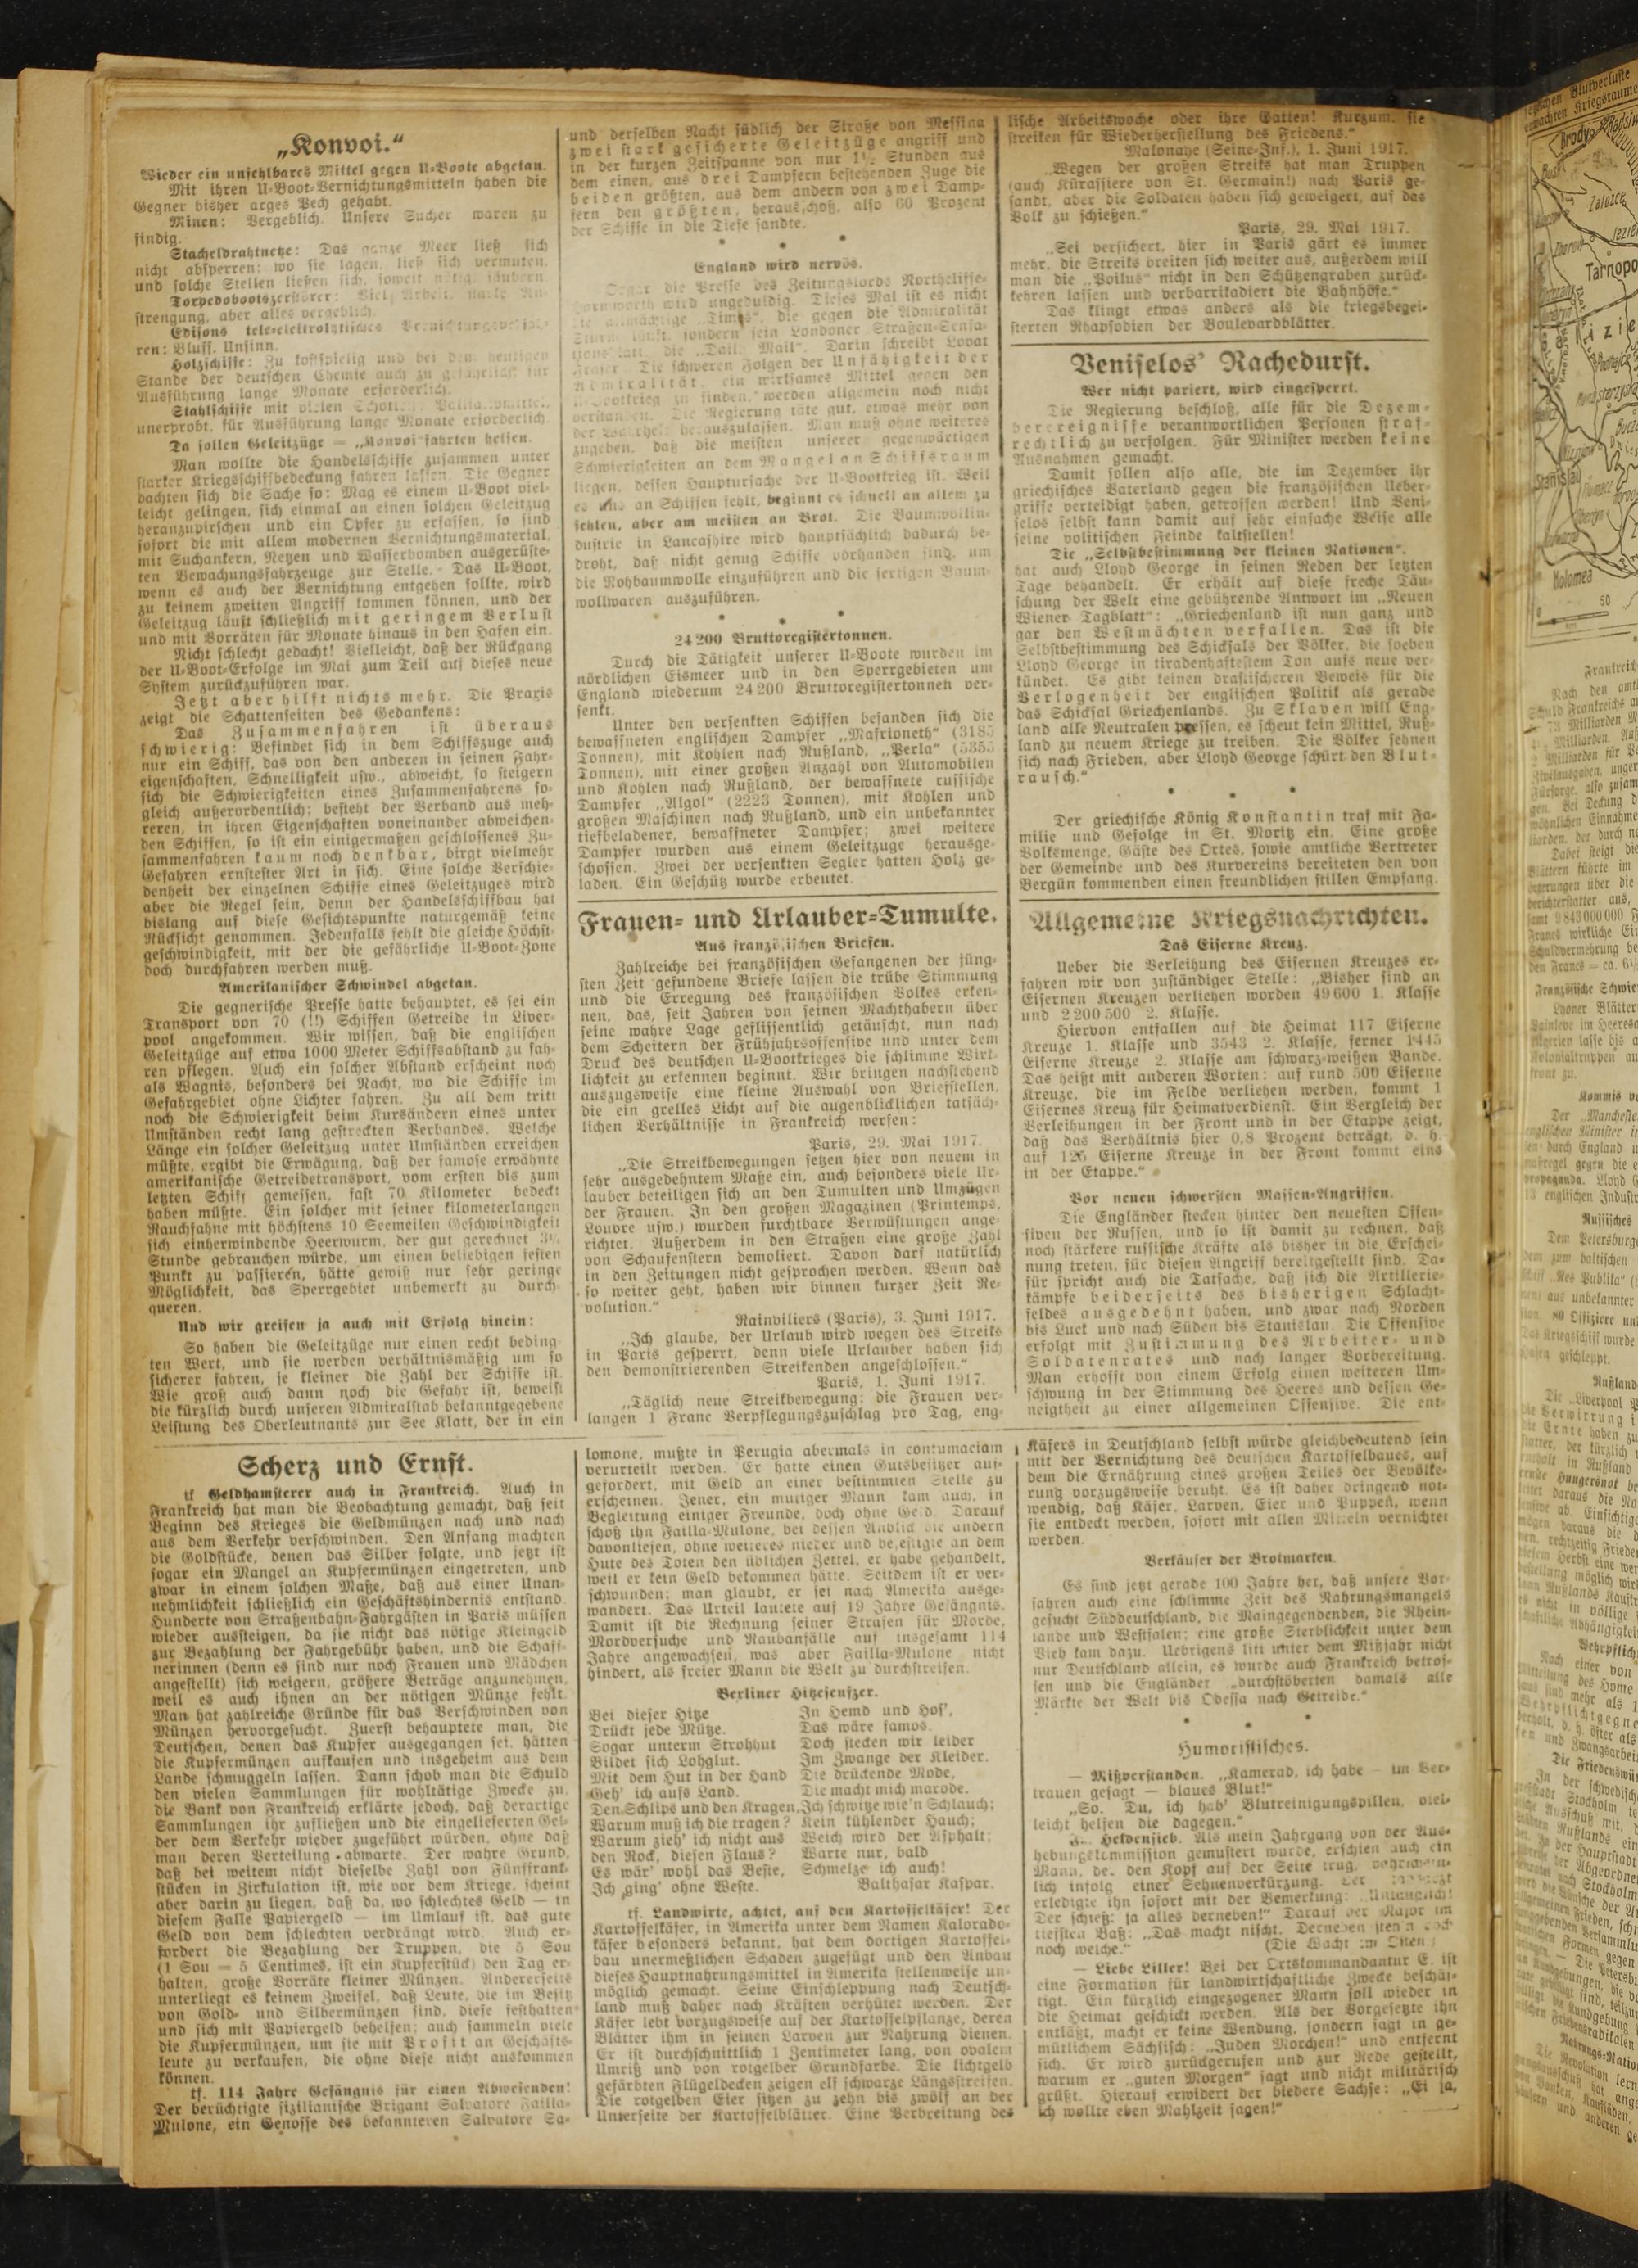 „Konvoi.“
Wieder ein unfehlbares Mittel gegen U-Boote abgetan.
Mit ihren U-Boot-Vernichtungsmitteln haben die
Gegner bisher arges Pech gehabt.
Minen: Vergeblich. Unsere Sucher waren zu
findig.
Stacheldrahtnetze: Das ganze Meer ließ sich
nicht absperren; wo sie lagen, ließ sich vermuten,
und solche Stellen ließen sich, soweit nötig, säubern.
Torpedobootszerstörer: Viel Arbeit, starke An-
strengung, aber alles vergeblich.
Edisons tele-elektrolytisches
ren: Bluff. Unsinn.
Holzschiffe: Zu kostspielig und bei dem heutigen
Stande der deutschen Chemie auch zu gefährlich; für
Ausführung lange Monate erforderlich.
Stahlschiffe mit vielen
unerprobt, für Ausführung lange Monate erforderlich.
Da sollen Geleitzüge = „Konvoi“fahrten helfen.
Man wollte die Handelsschiffe zusammen unter
starker Kriegsschiffbedeckung fahren lassen. Die Gegner
dachten sich die Sache so: Mag es einem U-Boot viel-
leicht gelingen, sich einmal an einen solchen Geleitzug
heranzupirschen und ein Opfer zu erfassen, so sind
sofort die mit allem modernen Vernichtungsmaterial,
mit Suchankern, Netzen und Wasserbomben ausgerüste-
ten Bewachungsfahrzeuge zur Stelle. Das U-Boot,
wenn es auch der Vernichtung entgehen sollte, wird
zu keinem zweiten Angriff kommen können, und der
Geleitzug läuft schließlich mit geringem Verlust
und mit Vorräten für Monate hinaus in den Hafen ein.
Nicht schlecht gedacht! Vielleicht, daß der Rückgang
der U-Boot-Erfolge im Mai zum Teil auf dieses neue
System zurückzuführen war.
Jetzt aber hilft nichts mehr. Die Praxis
zeigt die Schattenseiten des Gedankens:
Das Zusammenfahren ist überaus
schwierig: Befindet sich in dem Schiffszuge auch
nur ein Schiff, das von den anderen in seinen Fahr-
eigenschaften, Schnelligkeit usw., abweicht, so steigern
sich die Schwierigkeiten eines Zusammenfahrens so-
gleich außerordentlich; besteht der Verband aus meh-
reren, in ihren Eigenschaften voneinander abweichen-
den Schiffen, so ist ein einigermaßen geschlossenes Zu-
sammenfahren kaum noch denkbar, birgt vielmehr
Gefahren ernstester Art in sich. Eine solche Verschie-
denheit der einzelnen Schiffe eines Geleitzuges wird
aber die Regel sein, denn der Handelsschiffbau hat
bislang auf diese Gesichtspunkte naturgemäß keine
Rücksicht genommen. Jedenfalls fehlt die gleiche Höchst-
geschwindigkeit, mit der die gefährliche U-Boot-Zone
doch durchfahren werden muß.
Amerikanischer Schwindel abgetan.
Die gegnerische Presse hatte behauptet, es sei ein
Transport von 70 (!!) Schiffen Getreide in Liver-
pool angekommen. Wir wissen, daß die englischen
Geleitzüge auf etwa 1000 Meter Schiffsabstand zu fah-
ren pflegen. Auch ein solcher Abstand erscheint noch
als Wagnis, besonders bei Nacht, wo die Schiffe im
Gefahrgebiet ohne Lichter fahren. Zu all dem tritt
noch die Schwierigkeit beim Kursändern eines unter
Umständen recht lang gestreckten Verbandes. Welche
Länge ein solcher Geleitzug unter Umständen erreichen
müßte, ergibt die Erwägung, daß der famose erwähnte
amerikanische Getreidetransport, vom ersten bis zum
letzten Schiff gemessen, fast 70 Kilometer bedeckt
haben müßte. Ein solcher mit seiner kilometerlangen
Rauchfahne mit höchstens 10 Seemeilen Geschwindigkeit
sich einherwindende Heerwurm, der gut gerechnet 3¾
Stunde gebrauchen würde, um einen beliebigen festen
Punkt zu passieren, hätte gewiß nur sehr geringe
Möglichkeit, das Sperrgebiet unbemerkt zu durch-
queren.
Und wir greifen ja auch mit Erfolg hinein:
So haben die Geleitzüge nur einen recht beding-
ten Wert, und sie werden verhältnismäßig um so
sicherer fahren, je kleiner die Zahl der Schiffe ist.
Wie groß auch dann noch die Gefahr ist, beweist
die kürzlich durch unseren Admiralstab bekanntgegebene
Leistung des Oberleutnants zur See Klatt, der in ein
und derselben Nacht südlich der Straße von Messina
zwei stark gesicherte Geleitzüge angriff und
in der kurzen Zeitspanne von nur 1½ Stunden aus
dem einen, aus drei Dampfern bestehenden Zuge die
beiden größten, aus dem andern von zwei Damp-
fern den größten, herausschoß, also 60 Prozent
der Schiffe in die Tiefe sandte.
* * *
England wird nervös.
Sogar die Presse des Zeitungslords Northcliffe-
Harmsworth wird ungeduldig. Dieses Mal ist es nicht
die allmächtige „Times“, die gegen die Admiralität
Sturm läuft, sondern sein Londoner Straßen-Sensa-
tionsblatt, die „Daily Mail“. Darin schreibt Lovat
Fraser: „Die schweren Folgen der Unfähigkeit der
Admiralität, ein wirksames Mittel gegen den
U-Bootkrieg zu finden, werden allgemein noch nicht
verstanden. Die Regierung täte gut, etwas mehr von
der Wahrheit herauszulassen. Man muß ohne weiteres
zugeben, daß die meisten unserer gegenwärtigen
Schwierigkeiten an dem Mangel an Schiffsraum
liegen, dessen Hauptursache der U-Bootkrieg ist. Weil
es uns an Schiffen fehlt, beginnt es schnell an allem zu
fehlen, aber am meisten an Brot. Die Baumwollin-
dustrie in Lancashire wird hauptsächlich dadurch be-
droht, daß nicht genug Schiffe vorhanden sind, um
die Rohbaumwolle einzuführen und die fertigen Baum-
wollwaren auszuführen.
* * *
24 200 Bruttoregistertonnen.
Durch die Tätigkeit unserer U-Boote wurden im
nördlichen Eismeer und in den Sperrgebieten um
England wiederum 24 200 Bruttoregistertonnen ver-
senkt.
Unter den versenkten Schiffen befanden sich die
bewaffneten englischen Dampfer „Mafrioneth“ (3185
Tonnen), mit Kohlen nach Rußland, „Perla“ (5355
Tonnen), mit einer großen Anzahl von Automobilen
und Kohlen nach Rußland, der bewaffnete russische
Dampfer „Algol“ (2223 Tonnen), mit Kohlen und
großen Maschinen nach Rußland, und ein unbekannter
tiefbeladener, bewaffneter Dampfer; zwei weitere
Dampfer wurden aus einem Geleitzuge herausge-
schossen. Zwei der versenkten Segler hatten Holz ge-
laden. Ein Geschütz wurde erbeutet.
Frauen- und Urlauber-Tumulte.
Aus französischen Briefen.
Zahlreiche bei französischen Gefangenen der jüng-
sten Zeit gefundene Briefe lassen die trübe Stimmung
und die Erregung des französischen Volkes erken-
nen, das, seit Jahren von seinen Machthabern über
seine wahre Lage geflissentlich getäuscht, nun nach
dem Scheitern der Frühjahrsoffensive und unter dem
Druck des deutschen U-Bootkrieges die schlimme Wirk-
lichkeit zu erkennen beginnt. Wir bringen nachstehend
auszugsweise eine kleine Auswahl von Briefstellen,
die ein grelles Licht auf die augenblicklichen tatsäch-
lichen Verhältnisse in Frankreich werfen:
Paris, 29. Mai 1917.
„Die Streikbewegungen setzen hier von neuem in
sehr ausgedehntem Maße ein, auch besonders viele Ur-
lauber beteiligen sich an den Tumulten und Umzügen
der Frauen. In den großen Magazinen (Printemps,
Louvre usw.) wurden furchtbare Verwüstungen ange-
richtet. Außerdem in den Straßen eine große Zahl
von Schaufenstern demoliert. Davon darf natürlich
in den Zeitungen nicht gesprochen werden. Wenn das
so weiter geht, haben wir binnen kurzer Zeit Re-
volution.“
Rainviliers (Paris), 3. Juni 1917.
„Ich glaube, der Urlaub wird wegen des Streiks
in Paris gesperrt, denn viele Urlauber haben sich
den demonstrierenden Streikenden angeschlossen.“
Paris, 1. Juni 1917.
„Täglich neue Streikbewegung; die Frauen ver-
langen 1 Franc Verpflegungszuschlag pro Tag, eng-
lische Arbeitswoche oder ihre Gatten! Kurzum, sie
streiken für Wiederherstellung des Friedens.“
Malonaye (Seine-Inf.), 1. Juni 1917.
„Wegen der großen Streiks hat man Truppen
(auch Kürassiere von St. Germain!) nach Paris ge-
sandt, aber die Soldaten haben sich geweigert, auf das
Volk zu schießen.“
Paris, 29. Mai 1917.
„Sei versichert, hier in Paris gärt es immer
mehr, die Streiks breiten sich weiter aus, außerdem will
man die „Poilus“ nicht in den Schützengraben zurück-
kehren lassen und verbarrikadiert die Bahnhöfe.“
Das klingt etwas anders als die kriegsbegei-
sterten Rhapsodien der Boulevardblätter.
Veniselos’ Rachedurst.
Wer nicht pariert, wird eingesperrt.
Die Regierung beschloß, alle für die Dezem-
berereignisse verantwortlichen Personen straf-
rechtlich zu verfolgen. Für Minister werden keine
Ausnahmen gemacht.
Damit sollen also alle, die im Dezember ihr
griechisches Vaterland gegen die französischen Ueber-
griffe verteidigt haben, getroffen werden! Und Veni-
selos selbst kann damit auf sehr einfache Weise alle
seine politischen Feinde kaltstellen!
Die „Selbstbestimmung der kleinen Nationen“.
hat auch Lloyd George in seinen Reden der letzten
Tage behandelt. Er erhält auf diese freche Täu-
schung der Welt eine gebührende Antwort im „Neuen
Wiener Tagblatt“: „Griechenland ist nun ganz und
gar den Westmächten verfallen. Das ist die
Selbstbestimmung des Schicksals der Völker, die soeben
Lloyd George in tiradenhaftestem Ton aufs neue ver-
kündet. Es gibt keinen drastischeren Beweis für die
Verlogenheit der englischen Politik als gerade
das Schicksal Griechenlands. Zu Sklaven will Eng-
land alle Neutralen pressen, es scheut kein Mittel, Ruß-
land zu neuem Kriege zu treiben. Die Völker sehnen
sich nach Frieden, aber Lloyd George schürt den Blut-
rausch.“
* * *
Der griechische König Konstantin traf mit Fa-
milie und Gefolge in St. Moritz ein. Eine große
Volksmenge, Gäste des Ortes, sowie amtliche Vertreter
der Gemeinde und des Kurvereins bereiteten den von
Bergün kommenden einen freundlichen stillen Empfang.
Allgemeine Kriegsnachrichten.
Das Eiserne Kreuz.
Ueber die Verleihung des Eisernen Kreuzes er-
fahren wir von zuständiger Stelle: „Bisher sind an
Eisernen Kreuzen verliehen worden 49 600 1. Klasse
und 2 200 500 2. Klasse.
Hiervon entfallen auf die Heimat 117 Eiserne
Kreuze 1. Klasse und 3543 2. Klasse, ferner 1445
Eiserne Kreuze 2. Klasse am schwarz-weißen Bande.
Das heißt mit anderen Worten: auf rund 500 Eiserne
Kreuze, die im Felde verliehen werden, kommt 1
Eisernes Kreuz für Heimatverdienst. Ein Vergleich der
Verleihungen in der Front und in der Etappe zeigt,
daß das Verhältnis hier 0,8 Prozent beträgt, d. h.
auf 126 Eiserne Kreuze in der Front kommt eins
in der Etappe.“
Vor neuen schwersten Massen-Angriffen.
Die Engländer stecken hinter den neuesten Offen-
siven der Russen, und so ist damit zu rechnen, daß
noch stärkere russische Kräfte als bisher in die Erschei-
nung treten, für diesen Angriff bereitgestellt sind. Da-
für spricht auch die Tatsache, daß sich die Artillerie-
kämpfe beiderseits des bisherigen Schlacht-
feldes ausgedehnt haben, und zwar nach Norden
bis Luck und nach Süden bis Stanislau. Die Offensive
erfolgt mit Zustimmung des Arbeiter- und
Soldatenrates und nach langer Vorbereitung.
Man erhofft von einem Erfolg einen weiteren Um-
schwung in der Stimmung des Heeres und dessen Ge-
neigtheit zu einer allgemeinen Offensive. Die ent-
Scherz und Ernst.
tf Geldhamsterer auch in Frankreich. Auch in
Frankreich hat man die Beobachtung gemacht, daß seit
Beginn des Krieges die Geldmünzen nach und nach
aus dem Verkehr verschwinden. Den Anfang machten
die Goldstücke, denen das Silber folgte, und jetzt ist
sogar ein Mangel an Kupfermünzen eingetreten, und
zwar in einem solchen Maße, daß aus einer Unan-
nehmlichkeit schließlich ein Geschäftshindernis entstand.
Hunderte von Straßenbahn-Fahrgästen in Paris müssen
wieder aussteigen, da sie nicht das nötige Kleingeld
zur Bezahlung der Fahrgebühr haben, und die Schaff-
nerinnen (denn es sind nur noch Frauen und Mädchen
angestellt) sich weigern, größere Beträge anzunehmen,
weil es auch ihnen an der nötigen Münze fehlt.
Man hat zahlreiche Gründe für das Verschwinden von
Münzen hervorgesucht. Zuerst behauptete man, die
Deutschen, denen das Kupfer ausgegangen sei, hätten
die Kupfermünzen aufkaufen und insgeheim aus dem
Lande schmuggeln lassen. Dann schob man die Schuld
den vielen Sammlungen für wohltätige Zwecke zu,
die Bank von Frankreich erklärte jedoch, daß derartige
Sammlungen ihr zufließen und die eingelieferten Gel-
der dem Verkehr wieder zugeführt würden, ohne daß
man deren Verteilung abwarte. Der wahre Grund,
daß bei weitem nicht dieselbe Zahl von Fünffrank-
stücken in Zirkulation ist, wie vor dem Kriege, scheint
aber darin zu liegen, daß da, wo schlechtes Geld — in
diesem Falle Papiergeld — im Umlauf ist, das gute
Geld von dem schlechten verdrängt wird. Auch er-
fordert die Bezahlung der Truppen, die 5 Sou
(1 Sou = 5 Centimes, ist ein Kupferstück) den Tag er-
halten, große Vorräte kleiner Münzen. Andererseits
unterliegt es keinem Zweifel, daß Leute, die im Besitz
von Gold- und Silbermünzen sind, diese festhalten
und sich mit Papiergeld behelfen; auch sammeln viele
die Kupfermünzen, um sie mit Profit an Geschäfts-
leute zu verkaufen, die ohne diese nicht auskommen
können.
tf. 114 Jahre Gefängnis für einen Abwesenden!
Der berüchtigte sizilianische Brigant Salvatore Failla-
Mulone, ein Genosse des bekannteren Salvatore Sa-
lomone, mußte in Perugia abermals in contumaciam
verurteilt werden. Er hatte einen Gutsbesitzer auf-
gefordert, mit Geld an einer bestimmten Stelle zu
erscheinen. Jener, ein mutiger Mann kam auch, in
Begleitung einiger Freunde, doch ohne Geld. Darauf
schoß ihn Failla-Mulone, bei dessen Anblick die andern
davonliefen, ohne weiteres nieder und befestigte an dem
Hute des Toten den üblichen Zettel, er habe gehandelt,
weil er kein Geld bekommen hätte. Seitdem ist er ver-
schwunden; man glaubt, er sei nach Amerika ausge-
wandert. Das Urteil lautete auf 19 Jahre Gefängnis.
Damit ist die Rechnung seiner Strafen für Morde,
Mordversuche und Raubanfälle auf insgesamt 114
Jahre angewachsen, was aber Failla-Mulone nicht
hindert, als freier Mann die Welt zu durchstreifen.
Berliner Hitzeseufzer.
Bei dieser Hitze
Drückt jede Mütze.
Sogar unterm Strohhut
Bildet sich Lohglut.
Mit dem Hut in der Hand
Geh’ ich aufs Land.
Den Schlips und den Kragen,
Warum muß ich die tragen?
Warum zieh’ ich nicht aus
den Rock, diesen Flaus?
Es wär’ wohl das Beste,
Ich ging’ ohne Weste.
In Hemd und Hos’,
Das wäre famos.
Doch stecken wir leider
Im Zwange der Kleider.
Die drückende Mode,
Die macht mich marode.
Ich schwitze wie’n Schlauch;
Kein kühlender Hauch;
Weich wird der Asphalt;
Warte nur, bald
Schmelze ich auch!
Balthasar Kaspar.
tf. Landwirte, achtet, auf den Kartoffelkäfer! Der
Kartoffelkäfer, in Amerika unter dem Namen Kalorado-
käfer besonders bekannt, hat dem dortigen Kartoffel-
bau unermeßlichen Schaden zugefügt und den Anbau
dieses Hauptnahrungsmittel in Amerika stellenweise un-
möglich gemacht. Seine Einschleppung nach Deutsch-
land muß daher nach Kräften verhütet werden. Der
Käfer lebt vorzugsweise auf der Kartoffelpflanze, deren
Blätter ihm in seinen Larven zur Nahrung dienen.
Er ist durchschnittlich 1 Zentimeter lang, von ovalem
Umriß und von rotgelber Grundfarbe. Die lichtgelb
gefärbten Flügeldecken zeigen elf schwarze Längsstreifen.
Die rotgelben Eier sitzen zu zehn bis zwölf an der
Unterseite der Kartoffelblätter. Eine Verbreitung des
Käfers in Deutschland selbst würde gleichbedeutend sein
mit der Vernichtung des deutschen Kartoffelbaues, auf
dem die Ernährung eines großen Teiles der Bevölke-
rung vorzugsweise beruht. Es ist daher dringend not-
wendig, daß Käfer, Larven, Eier und Puppen, wenn
sie entdeckt werden, sofort mit allen Mitteln vernichtet
werden.
Verkäufer der Brotmarken.
Es sind jetzt gerade 100 Jahre her, daß unsere Vor-
fahren auch eine schlimme Zeit des Nahrungsmangels
gesucht Süddeutschland, die Maingegendenden, die Rhein-
lande und Westfalen; eine große Sterblichkeit unter dem
Vieh kam dazu. Uebrigens litt unter dem Mißjahr nicht
nur Deutschland allein, es wurde auch Frankreich betrof-
fen und die Engländer „durchstöberten damals alle
Märkte der Welt bis Odessa nach Getreide.“
* * *
Humoristisches.
— Mißverstanden. „Kamerad, ich habe — im Ver-
trauen gesagt — blaues Blut!“
„So. Du, ich hab’ Blutreinigungspillen, viel-
leicht helfen die dagegen.“
Heldensieb. Als mein Jahrgang von der Aus-
hebungskommission gemustert wurde, erschien auch ein
Mann, der den Kopf auf der Seite trug, wahrschein-
lich infolg einer Sehnenverkürzung. Der
erledigte ihn sofort mit der Bemerkung: „Untauglich!
Der schießt ja alles derneben!“ Darauf der Major im
tiefsten Baß: „Das macht nischt. Derneben stehn doch
noch welche.“ (Die Wacht im Osten.)
— Liebe Liller! Bei der Ortskommandantur E. ist
eine Formation für landwirtschaftliche Zwecke beschäf-
tigt. Ein kürzlich eingezogener Mann soll wieder in
die Heimat geschickt werden. Als der Vorgesetzte ihn
entläßt, macht er keine Wendung, sondern sagt in ge-
mütlichem Sächsisch: „Juden Morchen!“ und entfernt
sich. Er wird zurückgerufen und zur Rede gestellt,
warum er „guten Morgen“ sagt und nicht militärisch
grüßt. Hierauf erwidert der biedere Sachse: „Ei ja,
ich wollte eben Mahlzeit sagen!“
Brody
Zalozce
Tarnopo
Stanislau
Kolomea
50